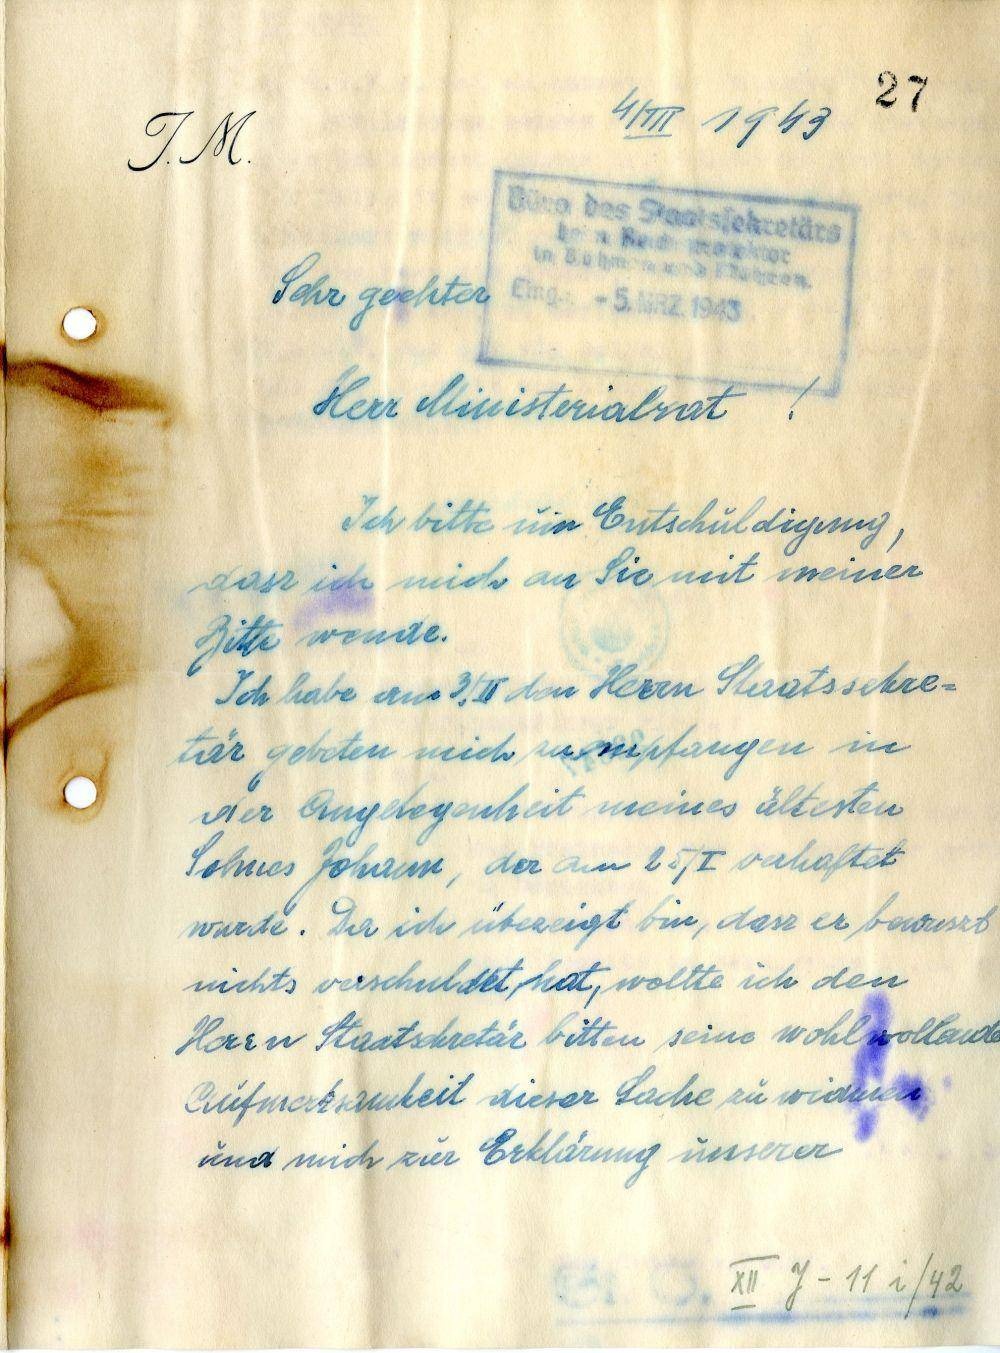 27
4/III 1943
J. M.
Büro des Staatssekretärs
beim Reichsprotektor
in Böhmen und Mähren.
Eing.: - 5. MRZ. 1943
Sehr geehter
Herr Ministerialrat !
Ich bitte um Entschuldigung,
dasz ich mich an Sie mit meiner
Bitte wende.
Ich habe am 3/II den Herrn Staatssekre=
tär gebeten mich zu empfangen in
der Angelegenheit meines ältesten
Sohnes Johann, der am 25/I verhaftet
wurde. Da ich überzeigt bin, dasz er bewuszt
nichts verschuldet hat, wollte ich den
Herrn Staatsekretär bitten seine wohlwollende
Aufmerksamkeit dieser Sache zu widmen
und mich zur Erklärung unserer
XII J - 11 i/42